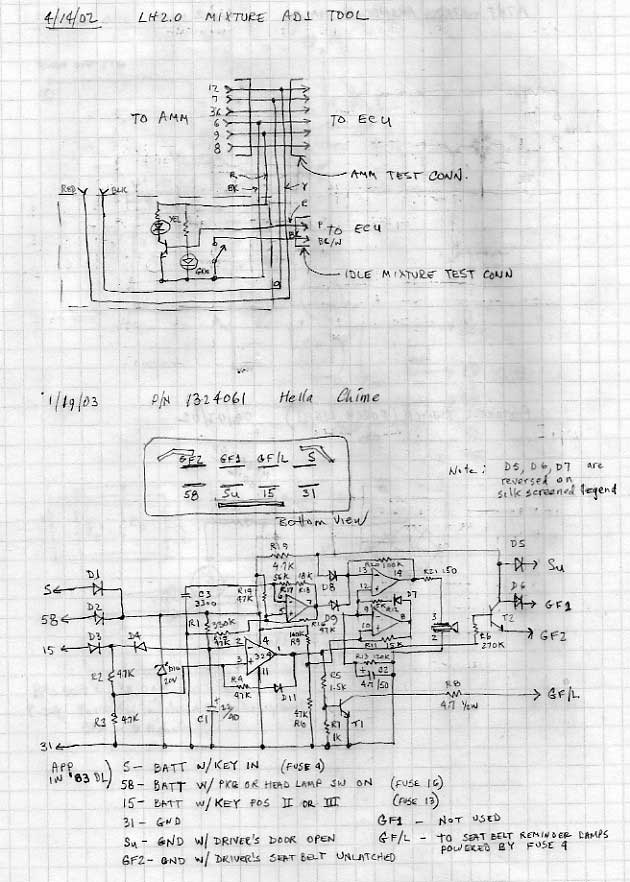 4/14/02 LH2.0 MIXTURE ADJ TOOL
12
7
36
6
9
8
TO AMM
TO ECU
AMM TEST CONN.
R
BK
Y
RED
BLK
YEL
GRN
P
TO ECU
BK/W
IDLE MIXTURE TEST CONN
1/19/03 P/N 1324061 Hella Chime
GF2 GF1 GF/L S
58 Su 15 31
Bottom View
Note: D5, D6, D7 are
reversed on
silk screened legend
R19
4.7K
D5
Su
D1
S
D2
58
D3
15
D4
C3
3300
R14
47K
56K
R17
18K
R18
D8
13
14
12
R21 150
D6
GF1
T2
GF2
D7
D9
R16
47K
9
10
8
R11 15K
3
2
R6
270K
R1
330K
47K
R12
2
3
4
324
1
11
100K
R9
R13 120K
C2
4.7/50
R2
47K
D10
20V
R4
47K
D11
R5
1.5K
R8
4.7 1/2W
GF/L
R3
47K
C1
47K
R10
R7
1K
T1
31
APP
IN '83 DL
S - BATT W/KEY IN (FUSE 4)
58 - BATT W/ PKG OR HEAD LAMP SW ON (FUSE 16)
15 - BATT W/KEY POS II OR III (FUSE 13)
31 - GND
Su - GND W/ DRIVER'S DOOR OPEN
GF2 - GND W/ DRIVER'S SEAT BELT UNLATCHED
GF1 - NOT USED
GF/L - TO SEAT BELT REMINDER LAMPS
POWERED BY FUSE 4